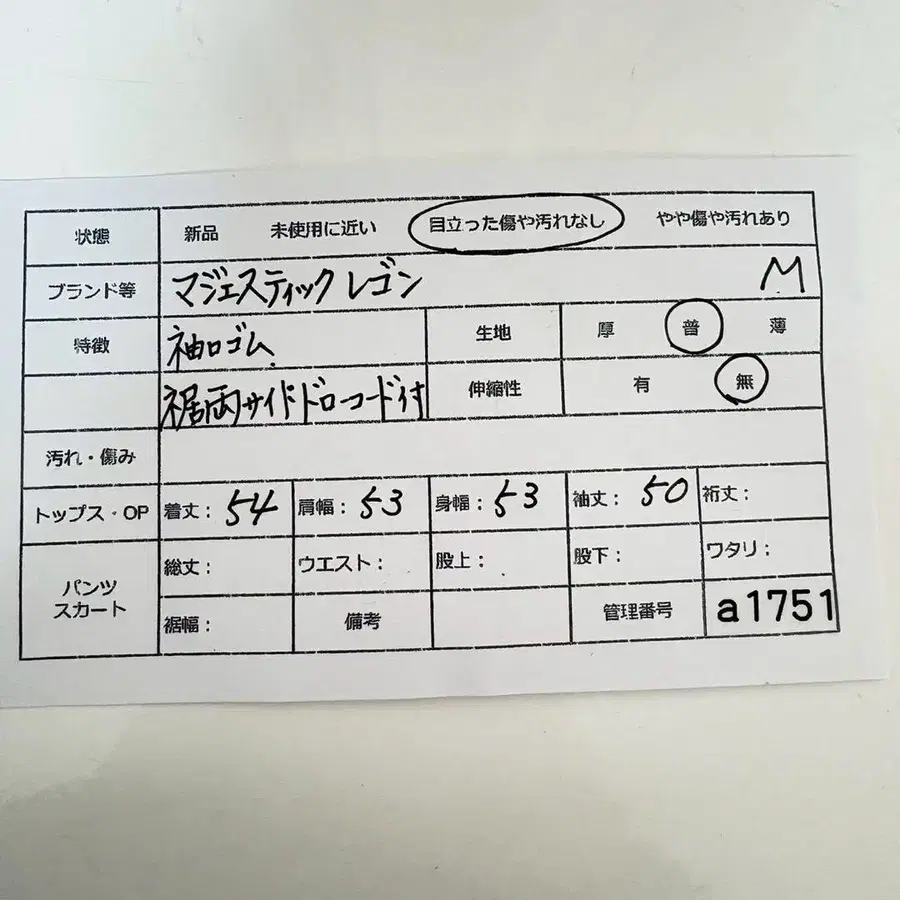 状態 新品 未使用に近い 目立った傷や汚れなし やや傷や汚れあり
ブランド等 マジェスティックレゴン M
特徴 袖口ゴム 生地 厚 普 薄
裾両サイドドローコード付 伸縮性 有 無
汚れ・傷み
トップス・OP 着丈: 54 肩幅: 53 身幅: 53 袖丈: 50 裄丈:
パンツ スカート 総丈: ウエスト: 股上: 股下: ワタリ:
裾幅: 備考 管理番号 a1751